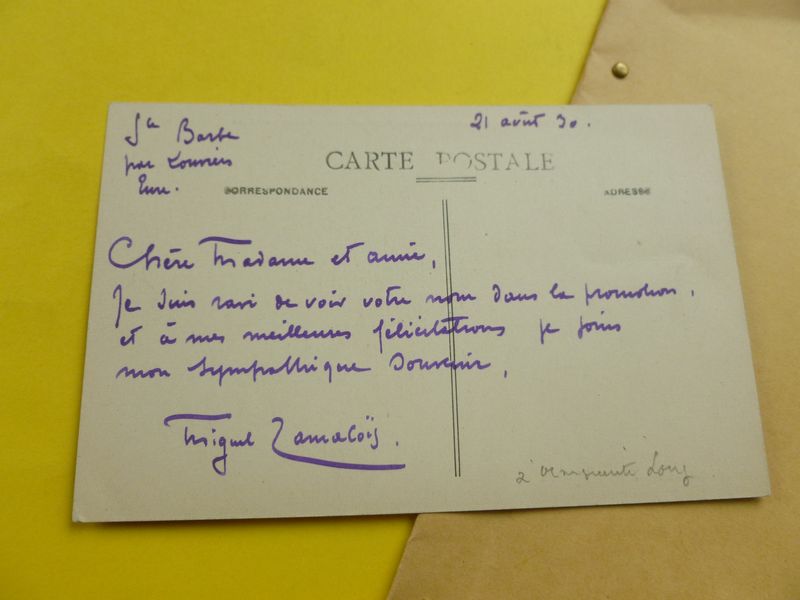 Ste Barbe
par Louviers
Eure.
21 août 30.
CARTE POSTALE
CORRESPONDANCE
ADRESSE
Chère Madame et amie,
Je suis ravi de voir votre nom dans la promotion,
et à mes meilleures félicitations je joins
mon sympathique souvenir,
Miguel Zamacoïs.
à Marguerite Long